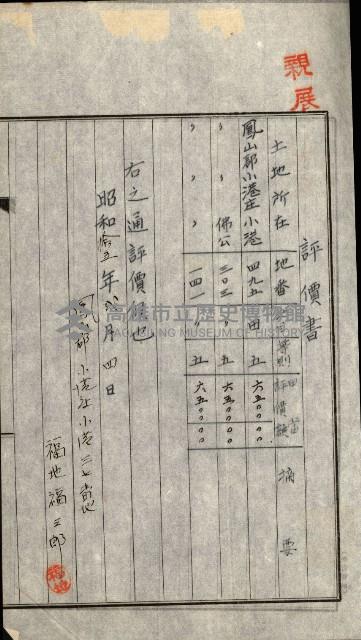 親展
評價書
土地所在 地番 則 評價額 摘要
鳳山郡小港庄小港 四九五 田 五 六五〇〇〇
〃 〃 佛公 三〇三 〃 五 六五〇〇〇
〃 〃 〃 一四一 五 六五〇〇〇
右之通評價候也
昭和拾五年 月四日
郡小港庄小港三七番地
福地福三郎
高雄市立歷史博物館
KAOHSIUNG MUSEUM OF HISTORY